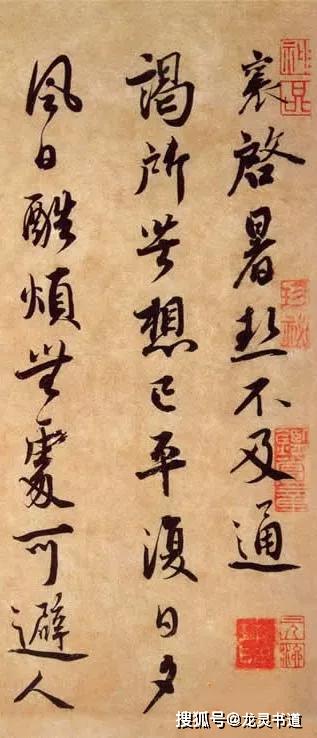 襄啓暑熱不及通
謁所苦想已平復日夕
風日酷煩無處可避人
搜狐号@龙灵书道